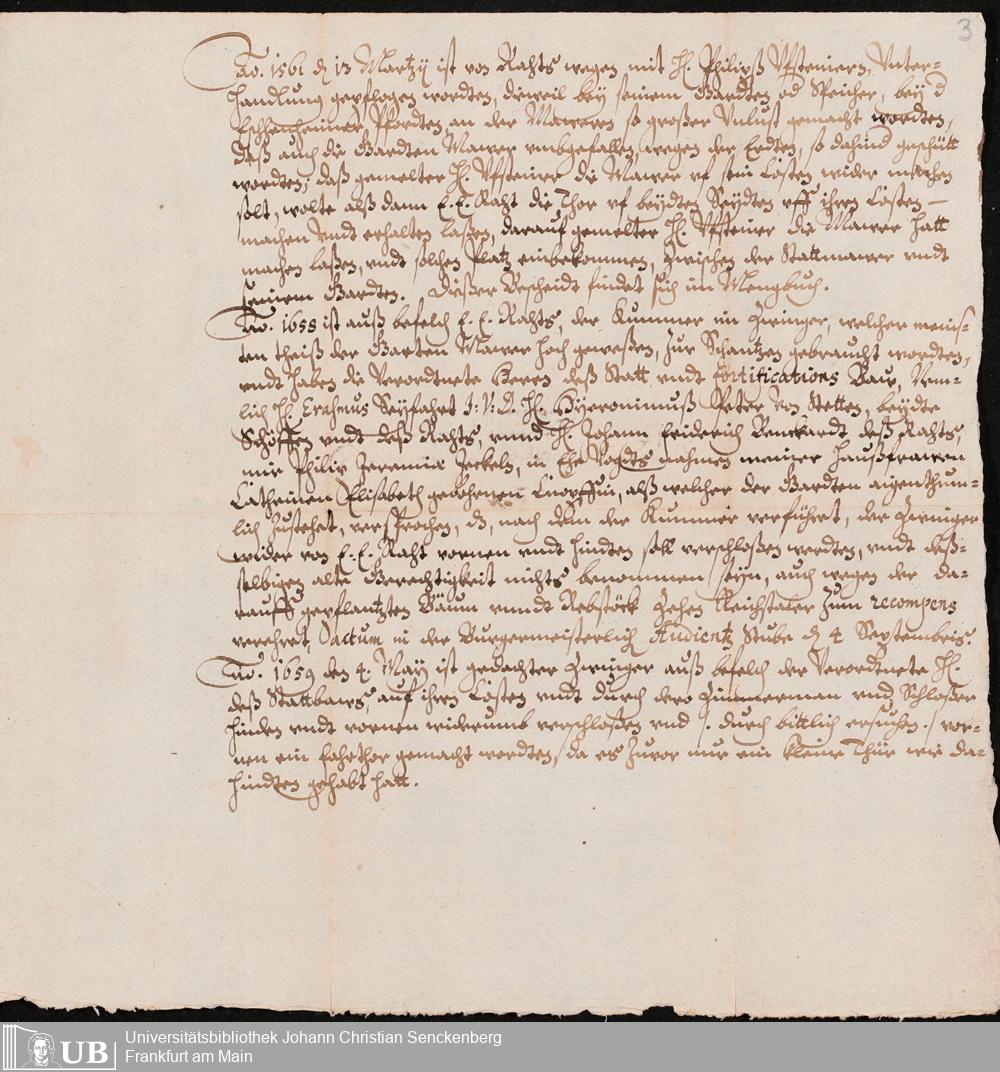 3
Ao. 1561 dē 13 Martzÿ ist von Rahts wegen mit H. Philipß Vffsteinern, Vnter-
handlung gepflogen wordten, dieweil bey seinem Gardten vnd Speicher, bey d
Eschenheimer Pfordten an der Mawren so großer Vnlust gemacht wordten,
daß auch die Gardten Mawer vmbgefallen, wegen der Erdten, so dahind geschütt
wordten, daß gemelter H. Vffsteiner die Mawer vf sein Costen wider machen
solt, wolte alß dann E. E. Raht die Thor vf beydten Seydten vff ihren Costen
machen vndt erhalten laßen, darauf gemelter H. Vffsteiner die Mawer hatt
machen laßen, vndt solchen Platz einbekommen, zwischen der Stattmawer vndt
seinem Gardten. Dießer Bescheidt findet sich im Mengbuch.
Ao. 1658 ist auß befelch E. E. Rahts, der Kummer im Zwinger, welcher meins-
ten theilß der Garten Mawer hoch geweßen, zur Schantzen gebraucht wordten,
vndt haben die Verordtnete Herrn deß Statt vndt fortifications Baw, Nem-
lich H. Erasmus Seyfahrt J: V. D. H. Hyeronimuß Peter von Stetten, beydte
Schöffen vndt deß Rahts, vnnd H. Johann Friderich Benckardt deß Rahts,
mir Philip Jeremia Jeckeln, in Ehe Vogdts nahmen meiner Haußfrawen
Catherinen Elisabeth gebohrnen, alß welcher der Gardten aigenthum-
lich zustehet, versprochen, dz, nach dem der Kummer verführet, der Zwinger
wider von E. E. Raht vornen vndt hindten soll verschloßen werdten, vndt deß-
selbigen alte Gerechtigkeit nichts benommen seyn, auch wegen der da-
rauff gepflantzten Bäum vnndt Rebstöck Zehen Reichstaler zum recompens
verehret, Actum in der Burgermeisterlich Audientz Stube dē 4 Septembris.
Ao. 1659 den 4. Maÿ ist gedachter Zwinger auß befelch der Verordtnete H.
deß Stattbaws, auf ihren Costen vndt durch dero Zimmerman vnd Schloßer
hinden vndt vornen widerumb verschloßen vnd /: durch bittlich ersuchen :/ vor-
nen ein fahrthor gemacht wordten, da es zuvor nur ein kleine Thür wie da-
hindten gehabt hatt.
UB
Universitätsbibliothek Johann Christian Senckenberg
Frankfurt am Main